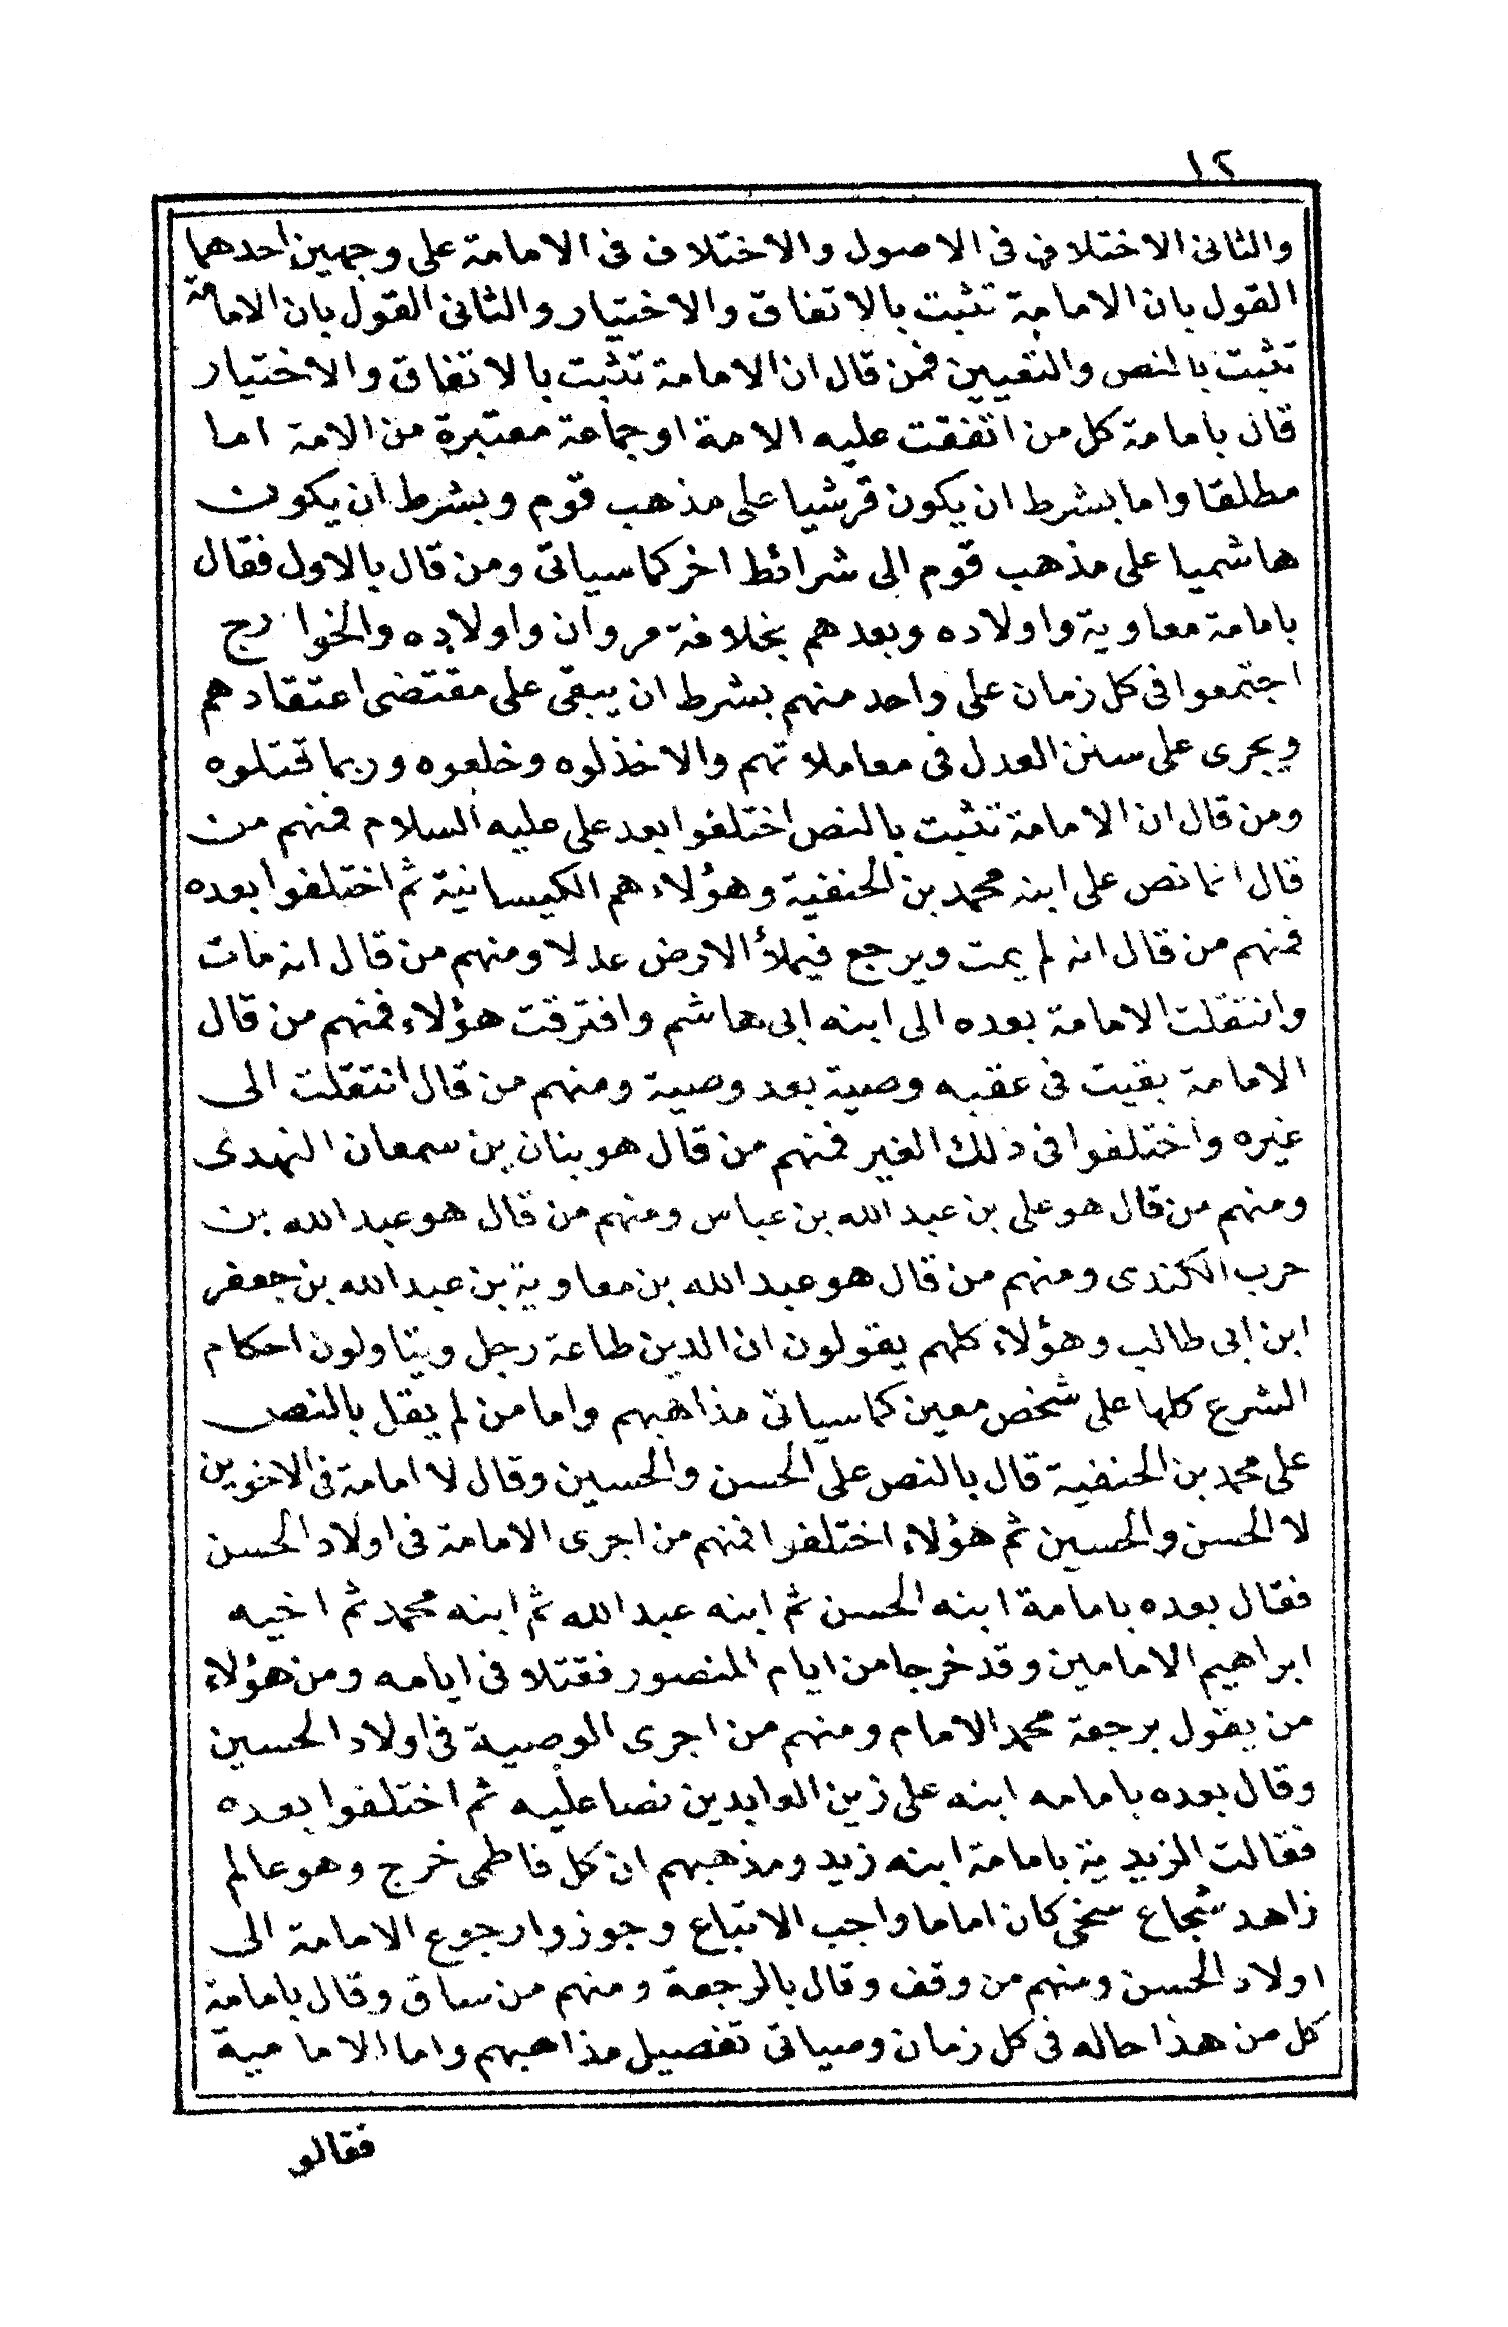 ١٢
والثانى الاختلاف فى الاصول والاختلاف فى الامامة على وجهين احدهما
القول بان الامامة تثبت بالاتفاق والاختيار والثانى القول بان الامامة
تثبت بالنص والتعيين فمن قال ان الامامة تثبت بالاتفاق والاختيار
قال بامامة كل من اتفقت عليه الامة او جماعة معتبرة من الامة اما
مطلقا واما بشرط ان يكون قرشيا على مذهب قوم وبشرط ان يكون
هاشميا على مذهب قوم الى شرائط اخر كما سياتى ومن قال بالاول فقال
بامامة معاوية واولاده وبعدهم بخلافة مروان واولاده والخوارج
اجتمعوا فى كل زمان على واحد منهم بشرط ان يبقى على مقتضى اعتقادهم
ويجرى على سنن العدل فى معاملاتهم والا خذلوه وخلعوه وربما قتلوه
ومن قال ان الامامة تثبت بالنص اختلفوا بعد على عليه السلام فمنهم من
قال انما نص على ابنه محمد بن الحنفية وهؤلاء هم الكيسانية ثم اختلفوا بعده
فمنهم من قال انه لم يمت ويرجع فيملأ الارض عدلا ومنهم من قال انه مات
وانتقلت الامامة بعده الى ابنه ابى هاشم وافترقت هؤلاء فمنهم من قال
الامامة بقيت فى عقبه وصية بعد وصية ومنهم من قال انتقلت الى
غيره واختلفوا فى ذلك الغير فمنهم من قال هو بنان بن سمعان النهدى
ومنهم من قال هو على بن عبد الله بن عباس ومنهم من قال هو عبد الله بن
حرب الكندى ومنهم من قال هو عبد الله بن معاوية بن عبد الله بن جعفر
ابن ابى طالب وهؤلاء كلهم يقولون ان الدين طاعة رجل ويتاولون احكام
الشرع كلها على شخص معين كما سياتى مذاهبهم واما من لم يقل بالنص
على محمد بن الحنفية قال بالنص على الحسن والحسين وقال لا امامة فى الاخوين
لا الحسن والحسين ثم هؤلاء اختلفوا فمنهم من اجرى الامامة فى اولاد الحسن
فقال بعده بامامة ابنه الحسن ثم ابنه عبد الله ثم ابنه محمد ثم اخيه
ابراهيم الامامين وقد خرجا من ايام المنصور فقتلا فى ايامه ومن هؤلاء
من يقول برجعة محمد الامام ومنهم من اجرى الوصية فى اولاد الحسين
وقال بعده بامامه ابنه على زين العابدين نصا عليه ثم اختلفوا بعده
فقالت الزيدية بامامة ابنه زيد ومذهبهم ان كل فاطمى خرج وهو عالم
زاهد شجاع سخى كان اماما واجب الاتباع وجوزوا رجوع الامامة الى
اولاد الحسن ومنهم من وقف وقال بالرجعة ومنهم من ساق وقال بامامة
كل من هذا حاله فى كل زمان وسياتى تفصيل مذاهبهم واما الامامية
فقالو